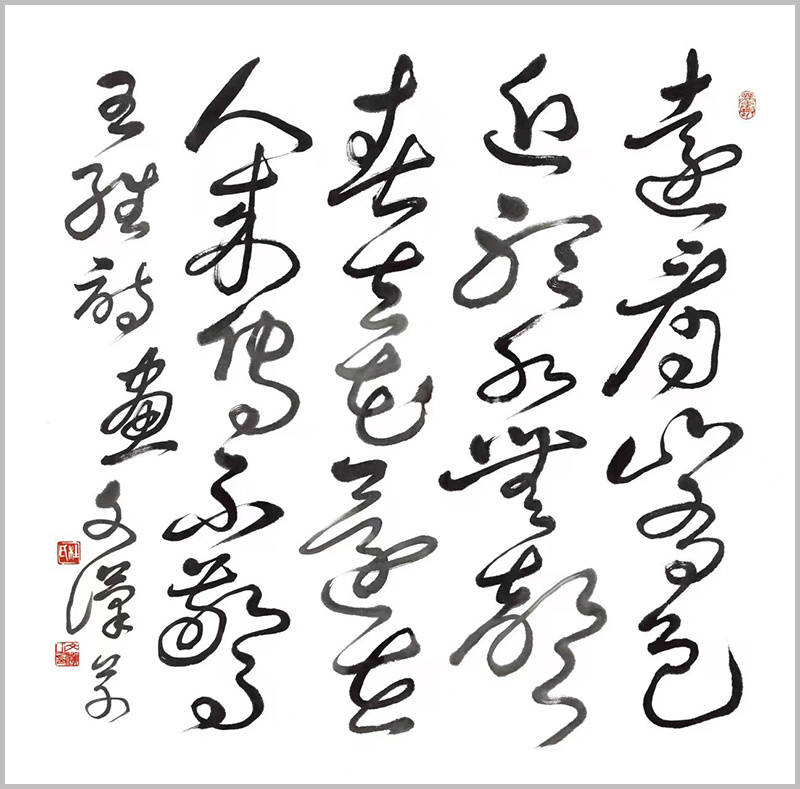 遠看山有色
近聽水無聲
春去花還在
人來鳥不驚
王維詩畫 文漢